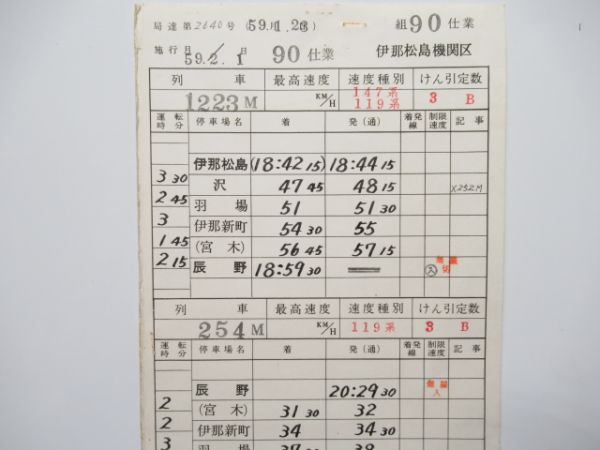 局達第2640号 (59.1.26) 組90仕業
施行 月/日 59.2.1 90仕業 伊那松島機関区
列車 最高速度 速度種別 けん引定数
1223M KM/H 147系 119系 3 B
運転時分 停車場名 着 発(通) 着発線 制限速度 記事
伊那松島 (18:42 15) 18:44 15
3 30 沢 47 45 48 15 X252M
2 45 羽場 51 51 30
3 伊那新町 54 30 55
1 45 (宮木) 56 45 57 15
2 15 辰野 18:59 30 入 切
列車 最高速度 速度種別 けん引定数
254M KM/H 119系 3 B
運転時分 停車場名 着 発(通) 着発線 制限速度 記事
辰野 20:29 30 無線入
2 (宮木) 31 30 32
2 伊那新町 34 34 30
3 羽場 37 38